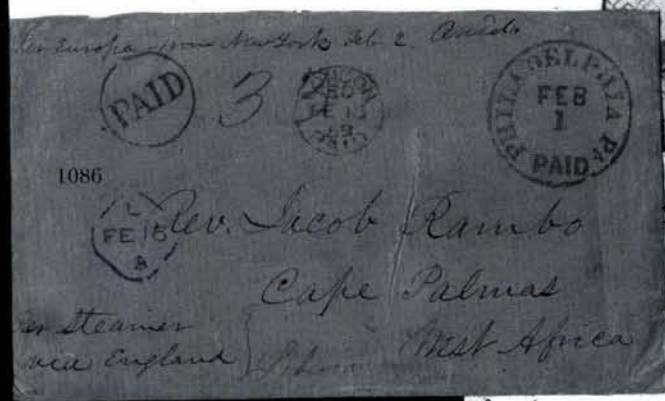 Per Europa from New York Feb 2.
PAID
3
LONDON
FE 15
PAID
PHILADELPHIA Pa.
FEB
1
PAID
1086
L
FE 15
A
Rev. Jacob Rambo
Cape Palmas
West Africa
Per steamer
via England